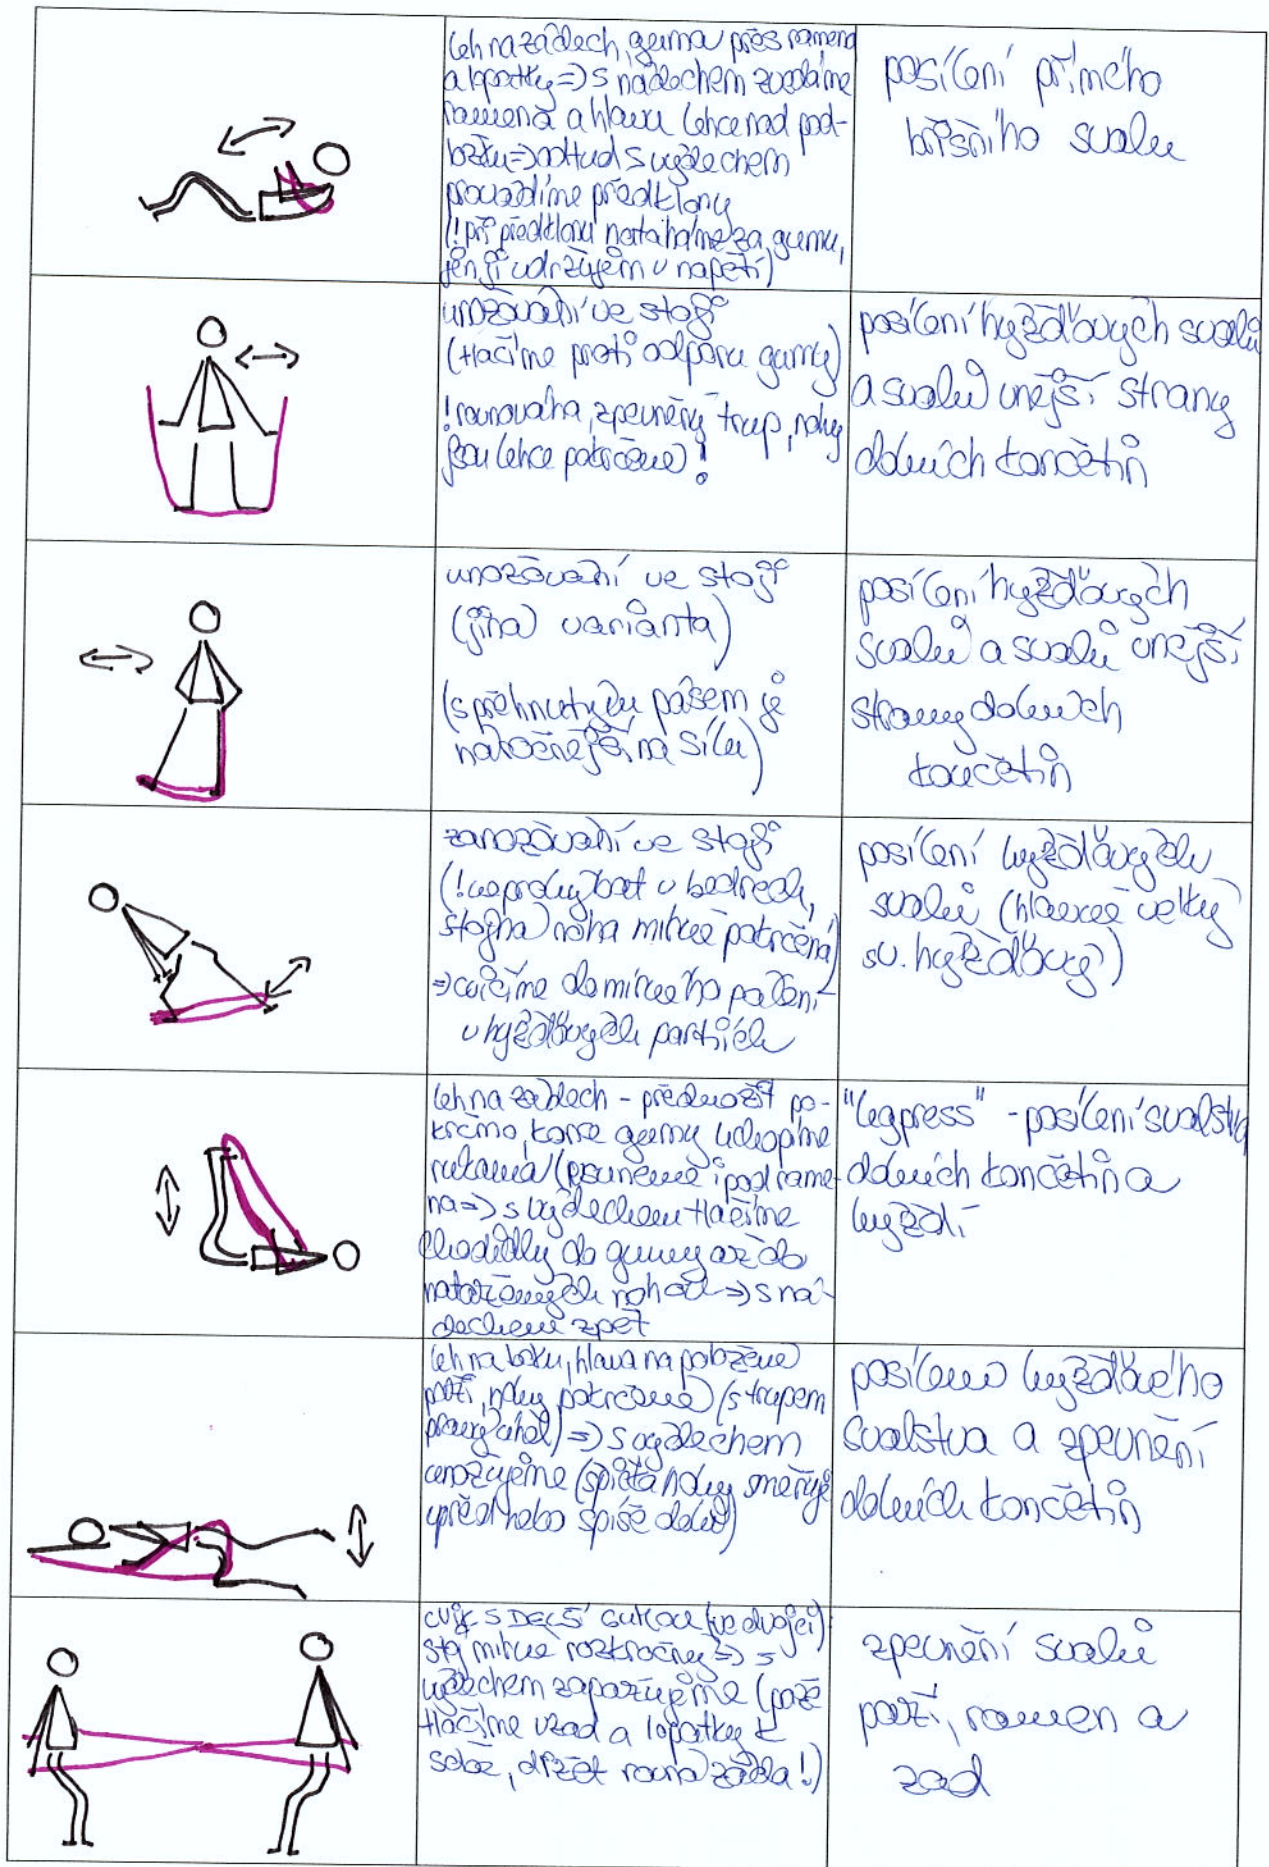 leh na zádech, guma přes ramena
a lopatky => s nádechem zvedáme
ramena a hlavu lehce nad pod-
ložku => odtud s výdechem
provádíme předklony
(! při předklonu netaháme za gumu,
jen ji udržujem v napětí)
posílení přímého
břišního svalu
unožování ve stoji
(tlačíme proti odporu gumy)
! rovnováha, zpevněný trup, nohy
jsou lehce pokrčené !
posílení hýžďových svalů
a svalů vnější strany
dolních končetin
unožování ve stoji
(jiná varianta)
(s přehnutým pásem je
náročnější na sílu)
posílení hýžďových
svalů a svalů vnější
strany dolních
končetin
zanožování ve stoji
(! neprohýbat v bedrech,
stojná noha mírně pokrčená)
=> cvičíme do mírného pálení
v hýžďových partiích
posílení hýžďových
svalů (hlavně velký
sv. hýžďový)
leh na zádech - přednožit po-
krčmo, konce gumy uchopíme
rukama (prsuneme i pod rame-
na => s výdechem tlačíme
chodidly do gumy až do
natažených nohou => s ná-
dechem zpět
"legpress" - posílení svalstva
dolních končetin a
hýždí
leh na boku, hlava na položené
paži, nohy pokrčené (s trupem
pravý úhel) => s výdechem
unožujeme (špička nohy směřuje
vpřed nebo spíše dolů)
posílení hýžďového
svalstva a zpevnění
dolních končetin
cvik s DELŠÍ gumou (ve dvojici)
stoj mírně rozkročný => s
výdechem zapažujeme (paže
tlačíme vzad a lopatky k
sobě, držet rovná záda!)
zpevnění svalů
paží, ramen a
zad